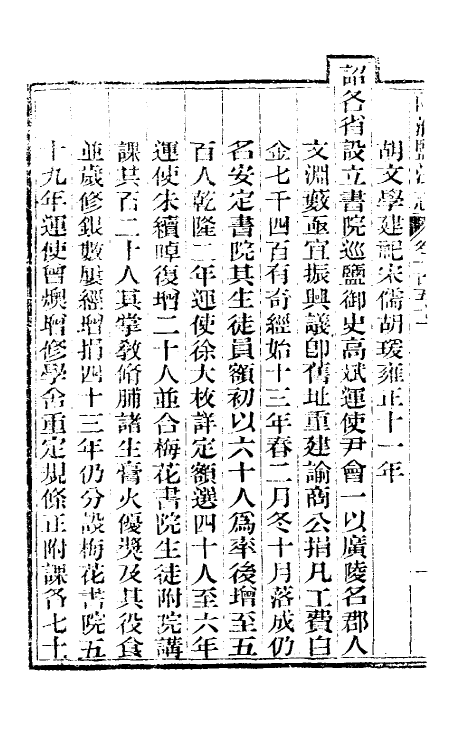 胡文學建記宋儒胡瑗雍正十一年
詔各省設立書院巡鹽御史高斌運使尹會一以廣陵名郡人
文淵藪亟宜振興議卽舊址重建諭商公捐凡工費白
金七千四百有奇經始十三年春二月冬十月落成仍
名安定書院其生徒員額初以六十人爲率後增至五
百人乾隆二年運使徐大枚詳定額選四十人至六年
運使朱續晫復增二十人並合梅花書院生徒附院講
課共百二十人其掌敎脩脯諸生膏火優奬及其役食
並歲修銀數屢經增捐四十三年仍分設梅花書院五
十九年運使曾燠增修學舍重定規條正附課各七十